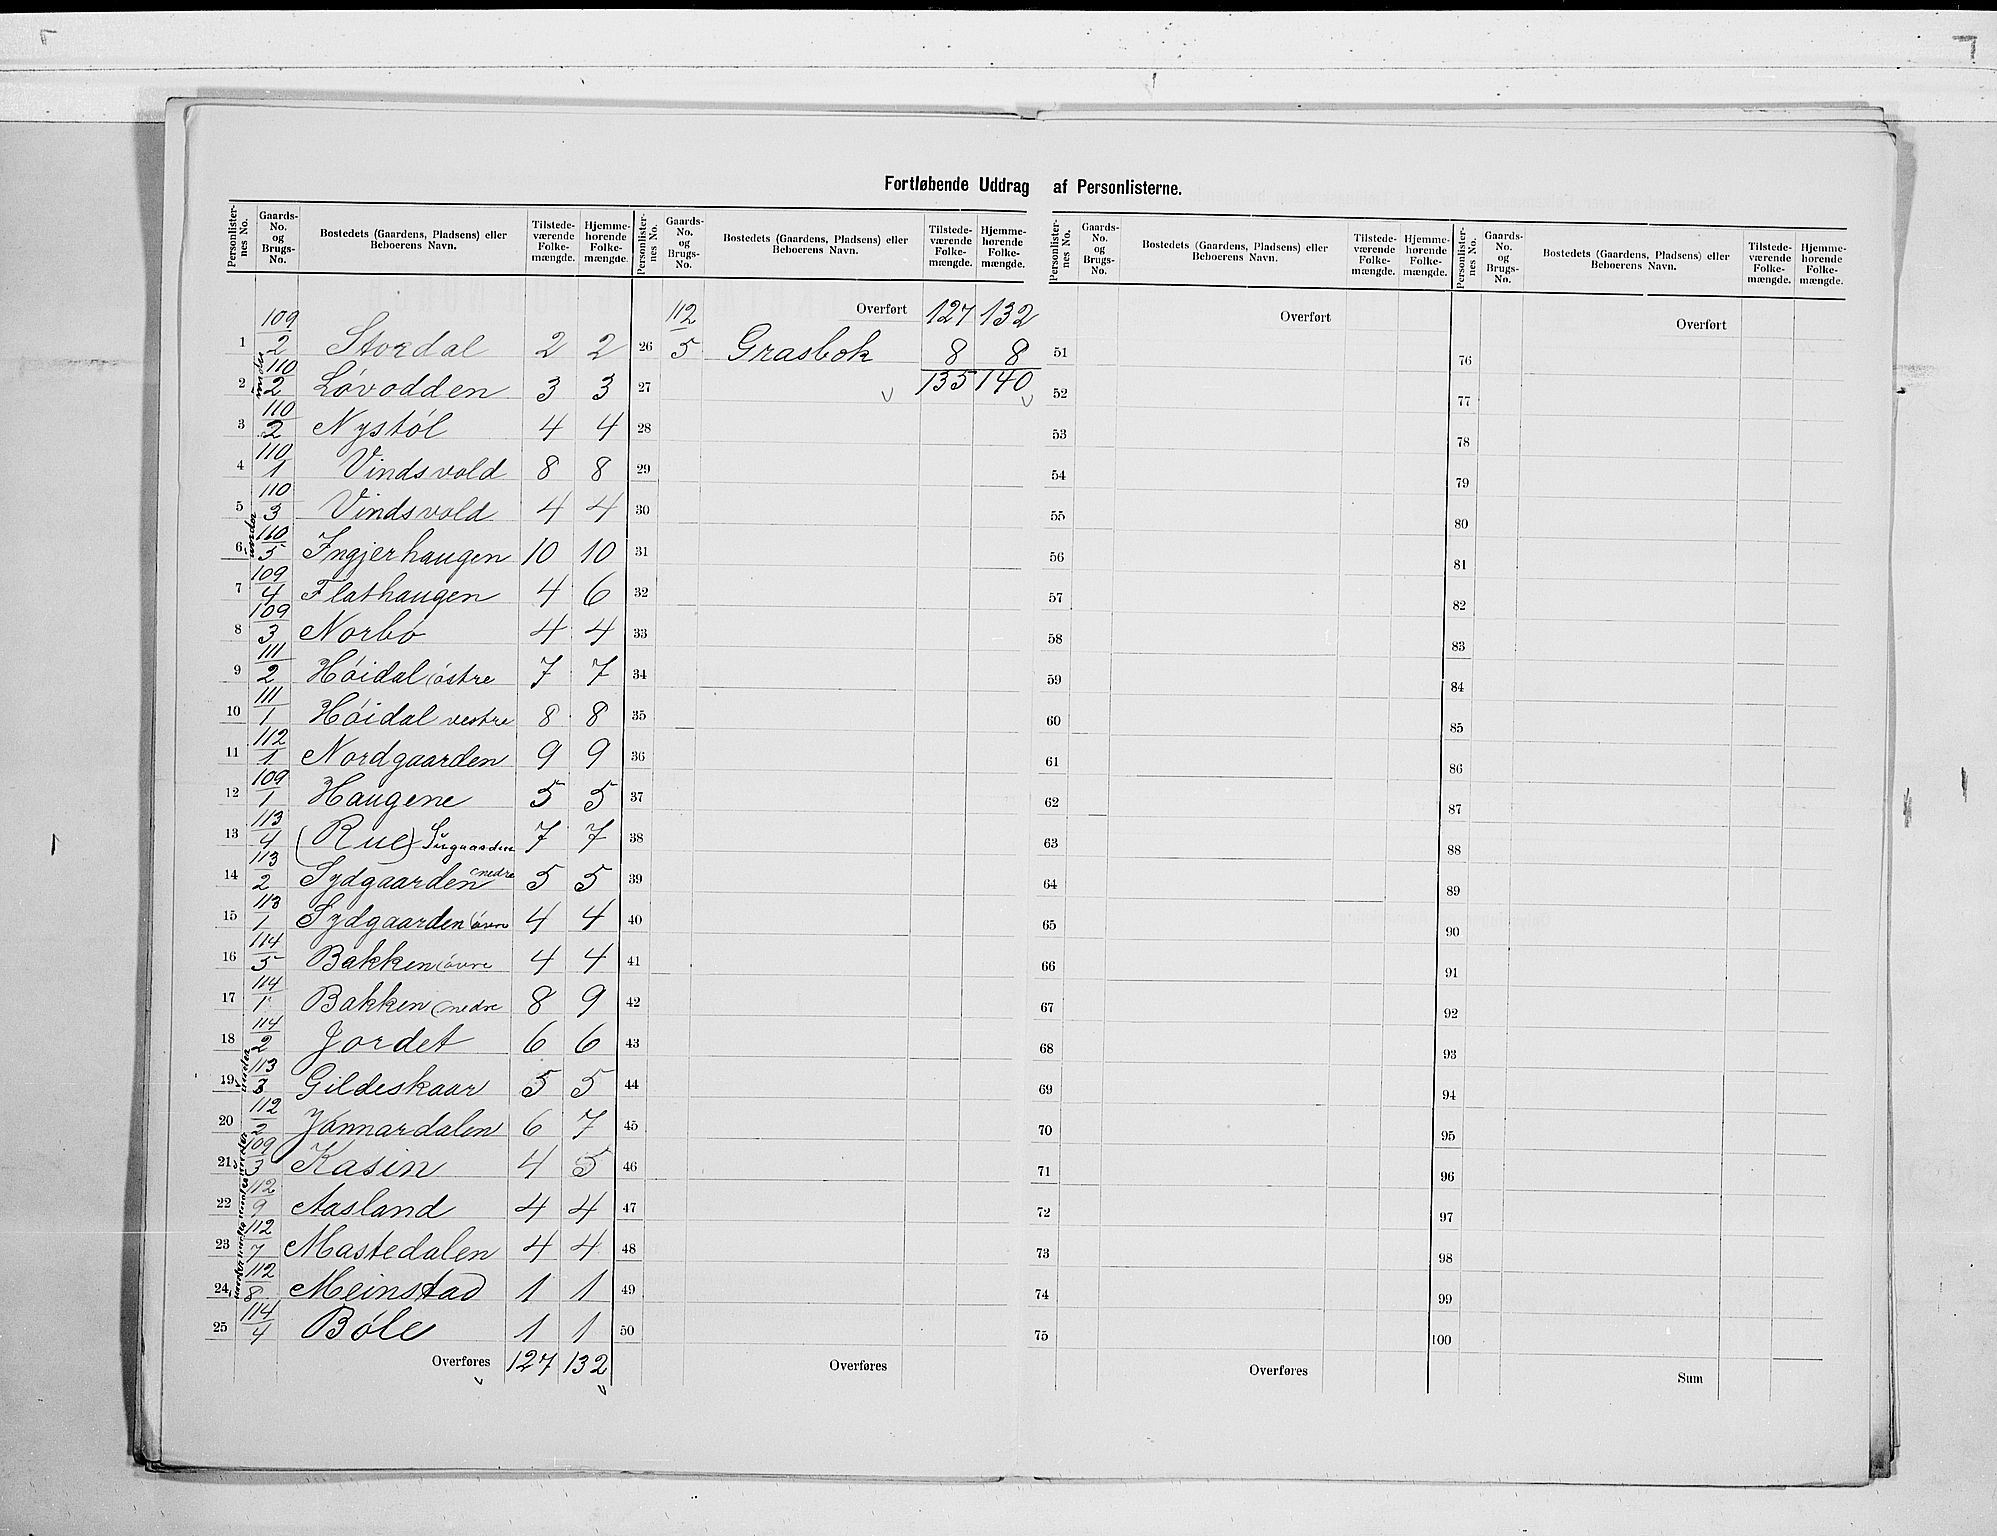 Fortløbende Uddrag af Personlisterne.
Personlister-nes No. | Gaards-No. og Brugs-No. | Bostedets (Gaardens, Pladsens) eller Beboerens Navn. | Tilstede-værende Folke-mængde. | Hjemme-hørende Folke-mængde.
1 | 109/2 | Stordal | 2 | 2
2 | under 110/2 | Løvodden | 3 | 3
3 | 110/2 | Nystøl | 4 | 4
4 | 110/1 | Vindsvold | 8 | 8
5 | 110/3 | Vindsvold | 4 | 4
6 | under 110/5 | Ingjerhaugen | 10 | 10
7 | 109/4 | Flathaugen | 4 | 6
8 | 109/3 | Norbø | 4 | 4
9 | 111/2 | Høidal (østre | 7 | 7
10 | 111/1 | Høidal vestre | 8 | 8
11 | 112/1 | Nordgaarden | 9 | 9
12 | 109/1 | Haugene | 5 | 5
13 | 113/4 | (Rue) | 7 | 7
14 | 113/2 | Sydgaarden nedre | 5 | 5
15 | 113/1 | Sydgaarden (øvre | 4 | 4
16 | 114/5 | Bakken (øvre | 4 | 4
17 | 114/1 | Bakken (nedre | 8 | 9
18 | 114/2 | Jordet | 6 | 6
19 | under 113/3 | Gildeskaar | 5 | 5
20 | 112/2 | Jønnardalen | 6 | 7
21 | under 109/3 | Kasin | 4 | 5
22 | under 112/9 | Aasland | 4 | 4
23 | 112/7 | Mastedalen | 4 | 4
24 | under 112/8 | Meinstad | 1 | 1
25 | 114/4 | Bøle | 1 | 1
Overføres 127 132
Personlister-nes No. | Gaards-No. og Brugs-No. | Bostedets (Gaardens, Pladsens) eller Beboerens Navn. | Tilstede-værende Folke-mængde. | Hjemme-hørende Folke-mængde.
Overført 127 132
26 | 112/5 | Grasbok | 8 | 8
27 | 135 | 140
28
29
30
31
32
33
34
35
36
37
38
39
40
41
42
43
44
45
46
47
48
49
50
Overføres
Personlister-nes No. | Gaards-No. og Brugs-No. | Bostedets (Gaardens, Pladsens) eller Beboerens Navn. | Tilstede-værende Folke-mængde. | Hjemme-hørende Folke-mængde.
Overført
51
52
53
54
55
56
57
58
59
60
61
62
63
64
65
66
67
68
69
70
71
72
73
74
75
Overføres
Personlister-nes No. | Gaards-No. og Brugs-No. | Bostedets (Gaardens, Pladsens) eller Beboerens Navn. | Tilstede-værende Folke-mængde. | Hjemme-hørende Folke-mængde.
Overført
76
77
78
79
80
81
82
83
84
85
86
87
88
89
90
91
92
93
94
95
96
97
98
99
100
Sum